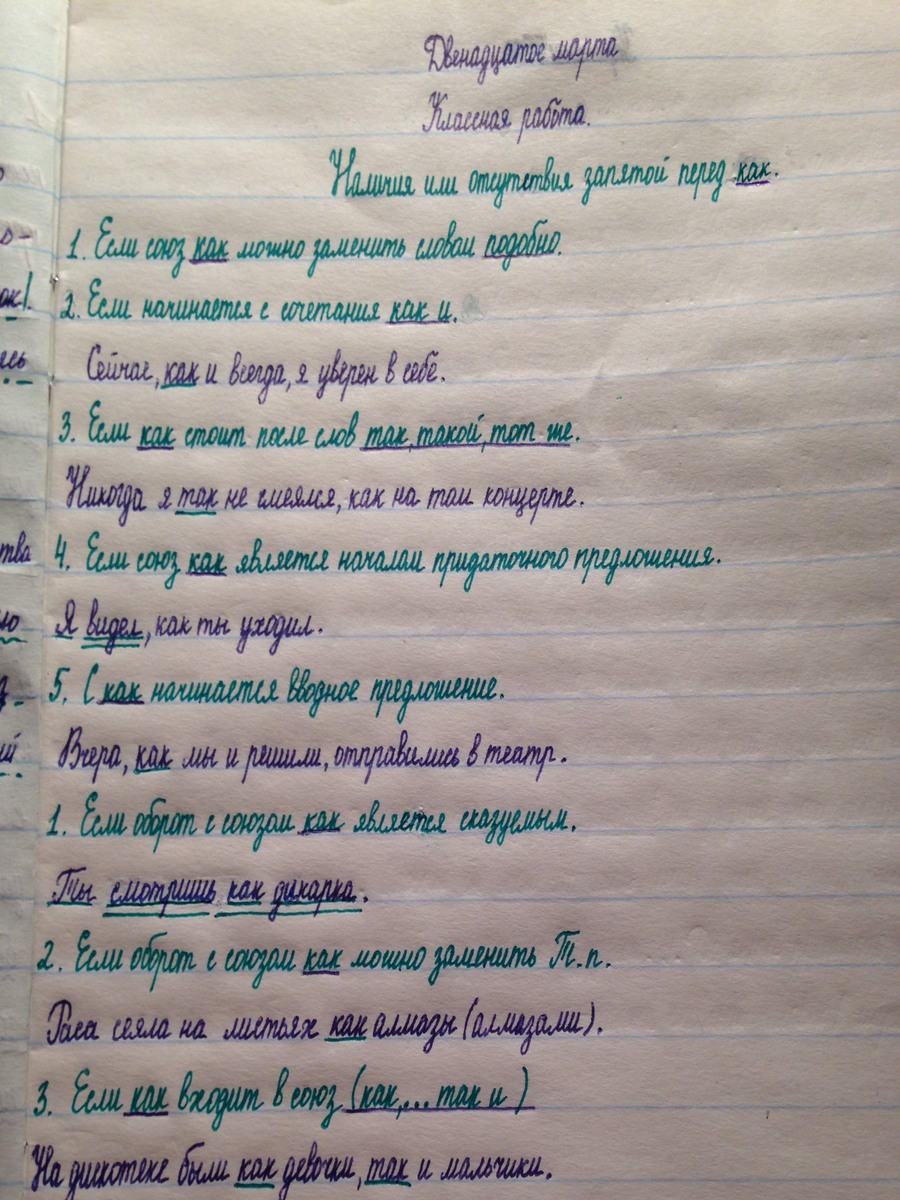 Двенадцатое марта
Классная работа.
Наличия или отсутствия запятой перед как.
1. Если союз как можно заменить словом подобно.
2. Если начинается с сочетания как и.
Сейчас, как и всегда, я уверен в себе.
3. Если как стоит после слов так, такой, тот же.
Никогда я так не смеялся, как на том концерте.
4. Если союз как является началом придаточного предложения.
Я видел, как ты уходил.
5. С как начинается вводное предложение.
Вчера, как мы и решили, отправились в театр.
1. Если оборот с союзом как является сказуемым.
Ты смотришь как дикарка.
2. Если оборот с союзом как можно заменить Т.п.
Роса сеяла на листьях как алмазы (алмазами).
3. Если как входит в союз (как,... так и)
На дискотеке были как девочки, так и мальчики.